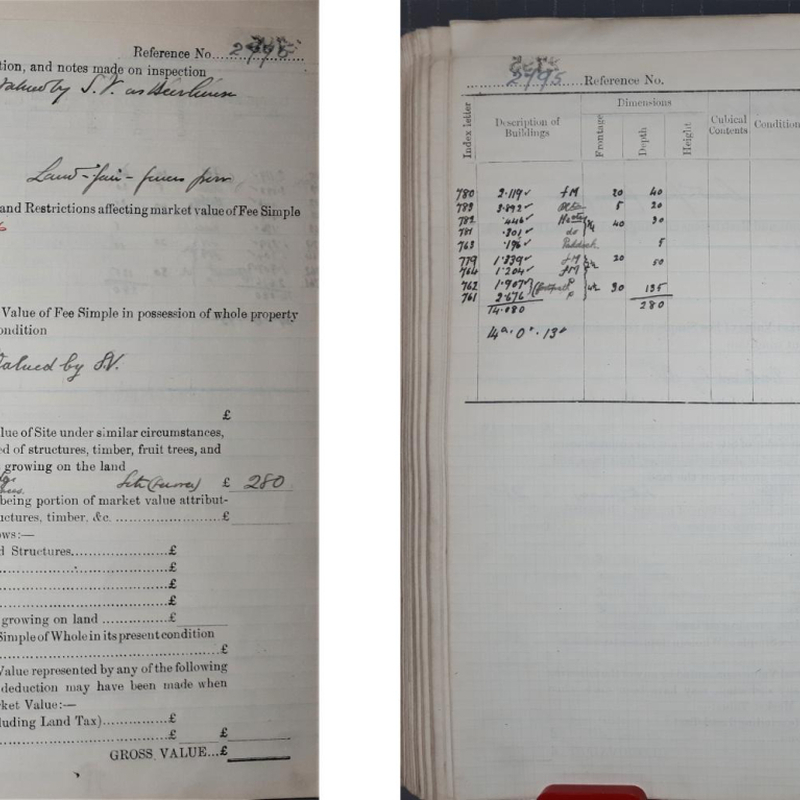 Reference No. 2795
tion, and notes made on inspection
Valued by S.V. as Beerhouse
Land - fair - fences poor
and Restrictions affecting market value of Fee Simple
Value of Fee Simple in possession of whole property
ondition
Valued by S.V.
£
lue of Site under similar circumstances,
ed of structures, timber, fruit trees, and
growing on the land
£ 280
being portion of market value attribut-
uctures, timber, &c. £
ows:—
d Structures £
£
£
£
growing on land £
Simple of Whole in its present condition
£
Value represented by any of the following
deduction may have been made when
ket Value:—
luding Land Tax) £
£ £
GROSS VALUE...£
2795 Reference No.
Index letter Description of Buildings Dimensions Frontage Depth Height Cubical Contents Condition
780 2.119 fM 20 40
783 3.892 5 20
782 .446 40 30
781 .301 do
763 .196 Paddock 5
779 1.339 fM 20 50
764 1.204 fM
762 1.907 (footpath) P 30 135
761 2.676 P
14.080 280
14a. 0r. 13p